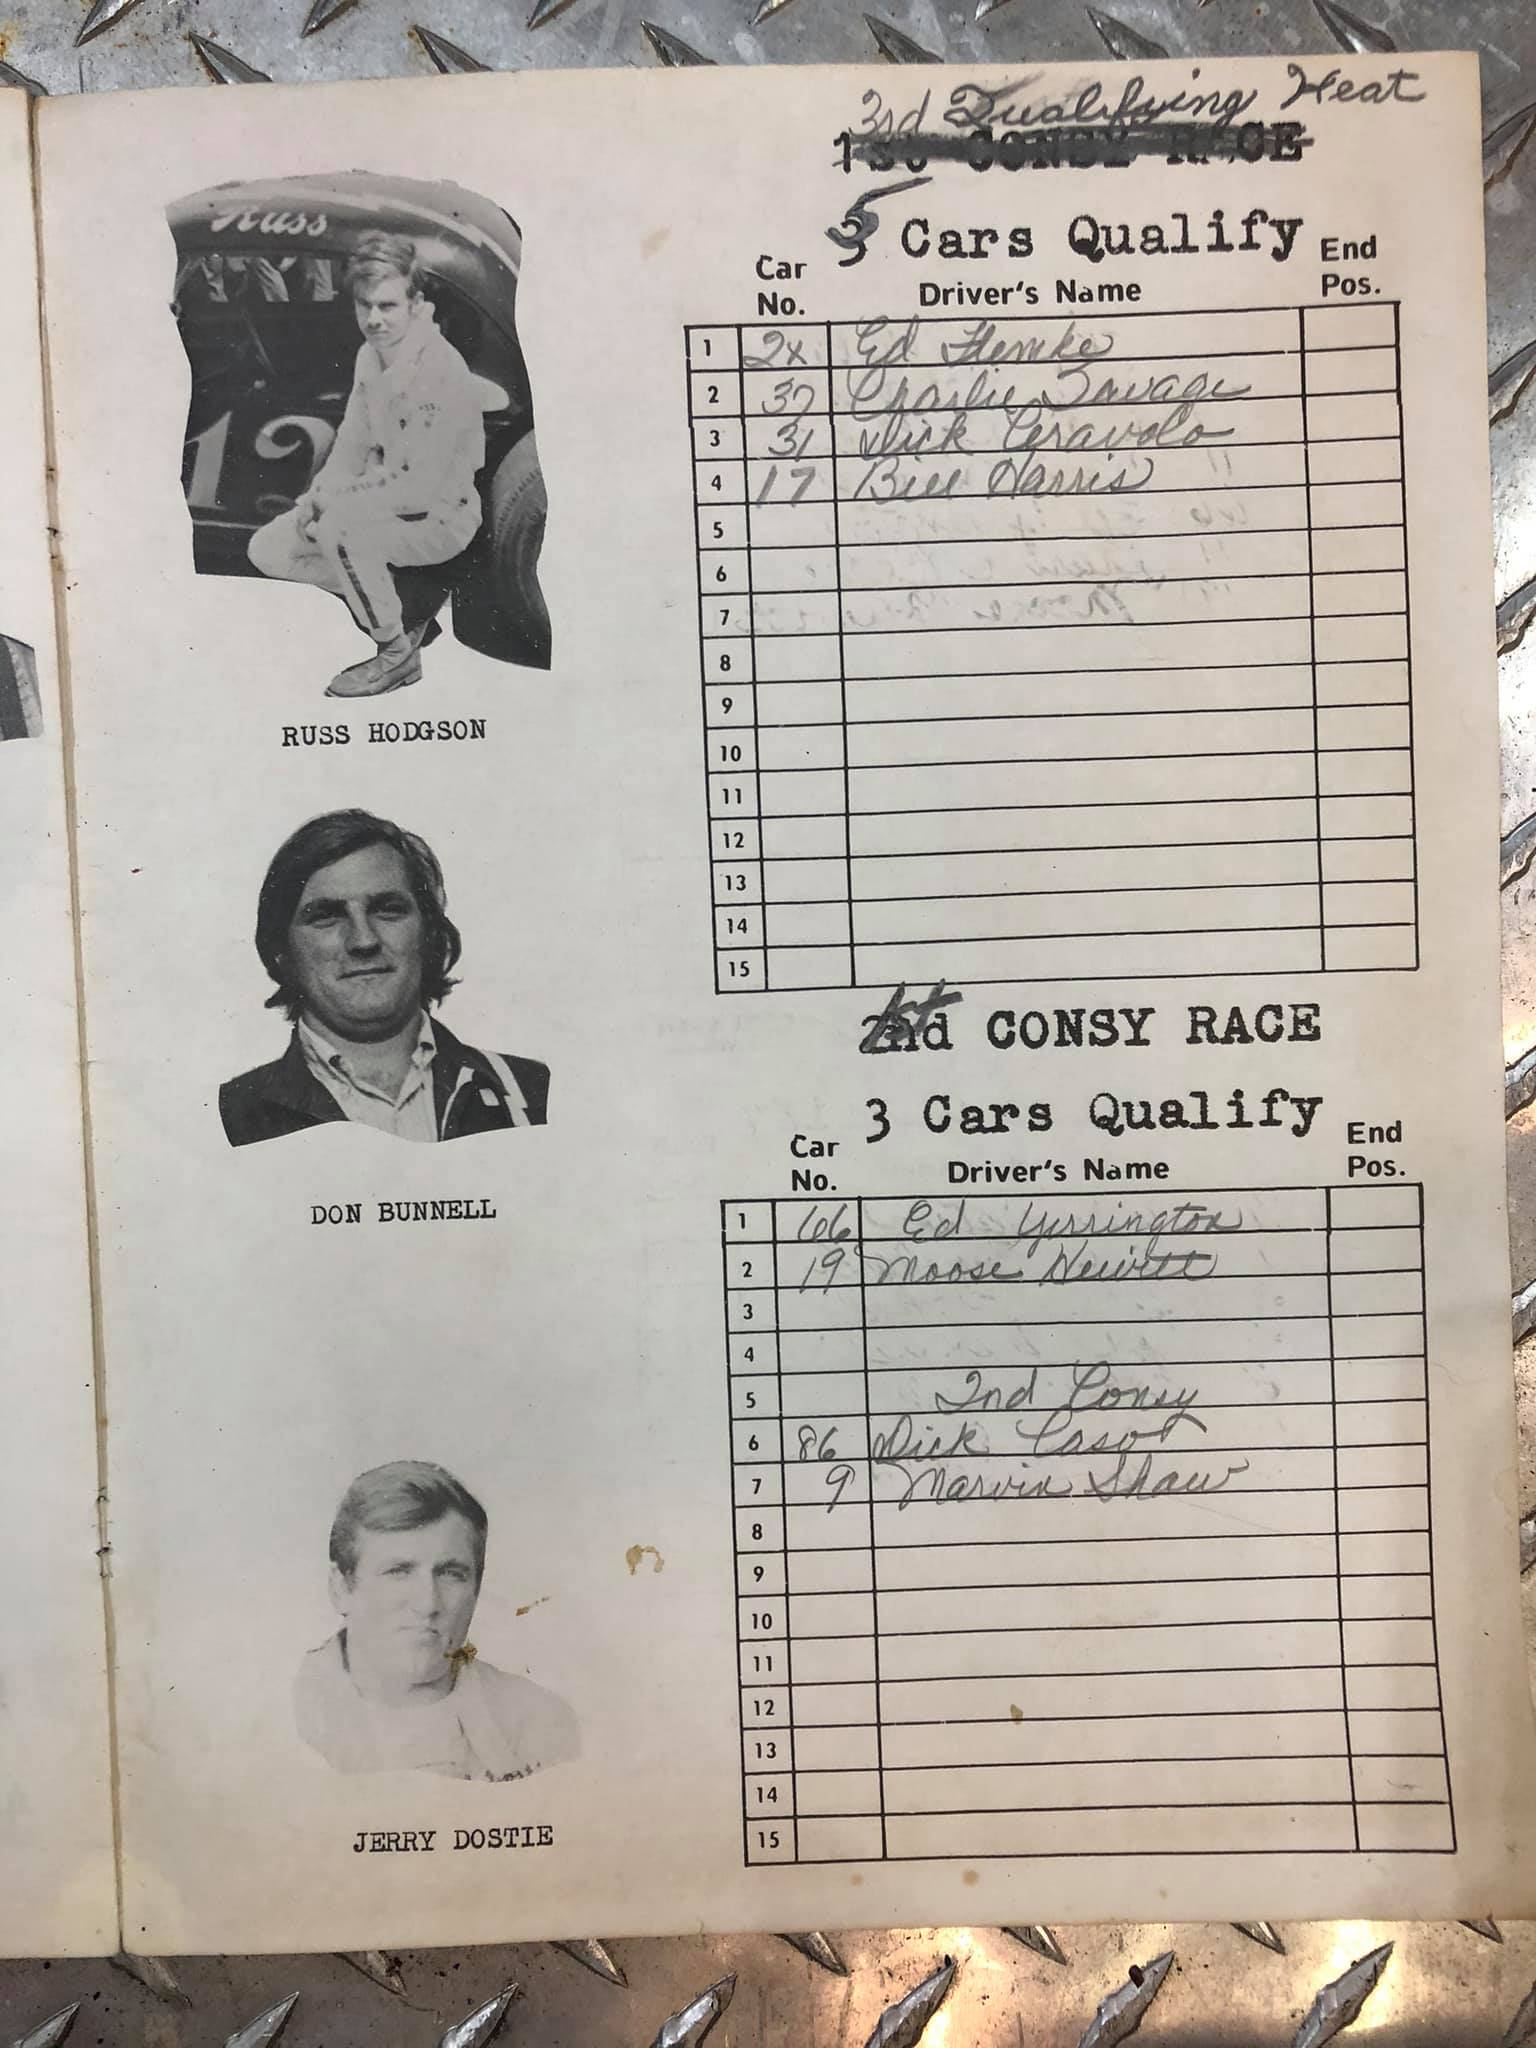 3rd Qualifying Heat
1st CONSY RACE
5 Cars Qualify
Car No. Driver's Name End Pos.
1 2x Ed Flemke
2 37 Charlie Savage
3 31 Dick Ceravolo
4 17 Bill Harris
5
6
7
8
9
10
11
12
13
14
15
1st
2nd CONSY RACE
3 Cars Qualify
Car No. Driver's Name End Pos.
1 66 Ed Yerrington
2 19 Moose Hewitt
3
4
5 2nd Consy
6 86 Dick Caso
7 9 Marvin Shaw
8
9
10
11
12
13
14
15
Russ
12
RUSS HODGSON
DON BUNNELL
JERRY DOSTIE